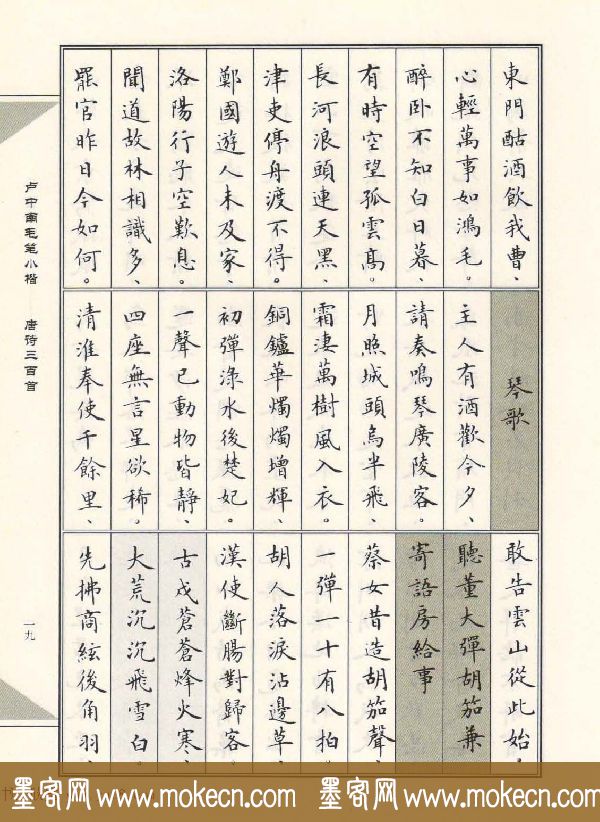 東門酤酒飲我曹、
心輕萬事如鴻毛。
醉卧不知白日暮、
有時空望孤雲高。
長河浪頭連天黑、
津吏停舟渡不得。
鄭國遊人未及家、
洛陽行子空歎息。
聞道故林相識多、
罷官昨日今如何。
琴歌
主人有酒歡今夕、
請奏鳴琴廣陵客。
月照城頭烏半飛、
霜淒萬樹風入衣。
銅鑪華燭燭增輝、
初彈淥水後楚妃。
一聲已動物皆静、
四座無言星欲稀。
清淮奉使千餘里、
敢告雲山從此始。
聽董大彈胡笳兼
寄語房給事
蔡女昔造胡笳聲、
一彈一十有八拍。
胡人落淚沾邊草、
漢使斷腸對歸客。
古戍蒼蒼烽火寒、
大荒沉沉飛雪白。
先拂商絃後角羽、
卢中南毛笔小楷 唐诗三百首
一九
墨客网 www.mokecn.com 墨客网 www.mokecn.com